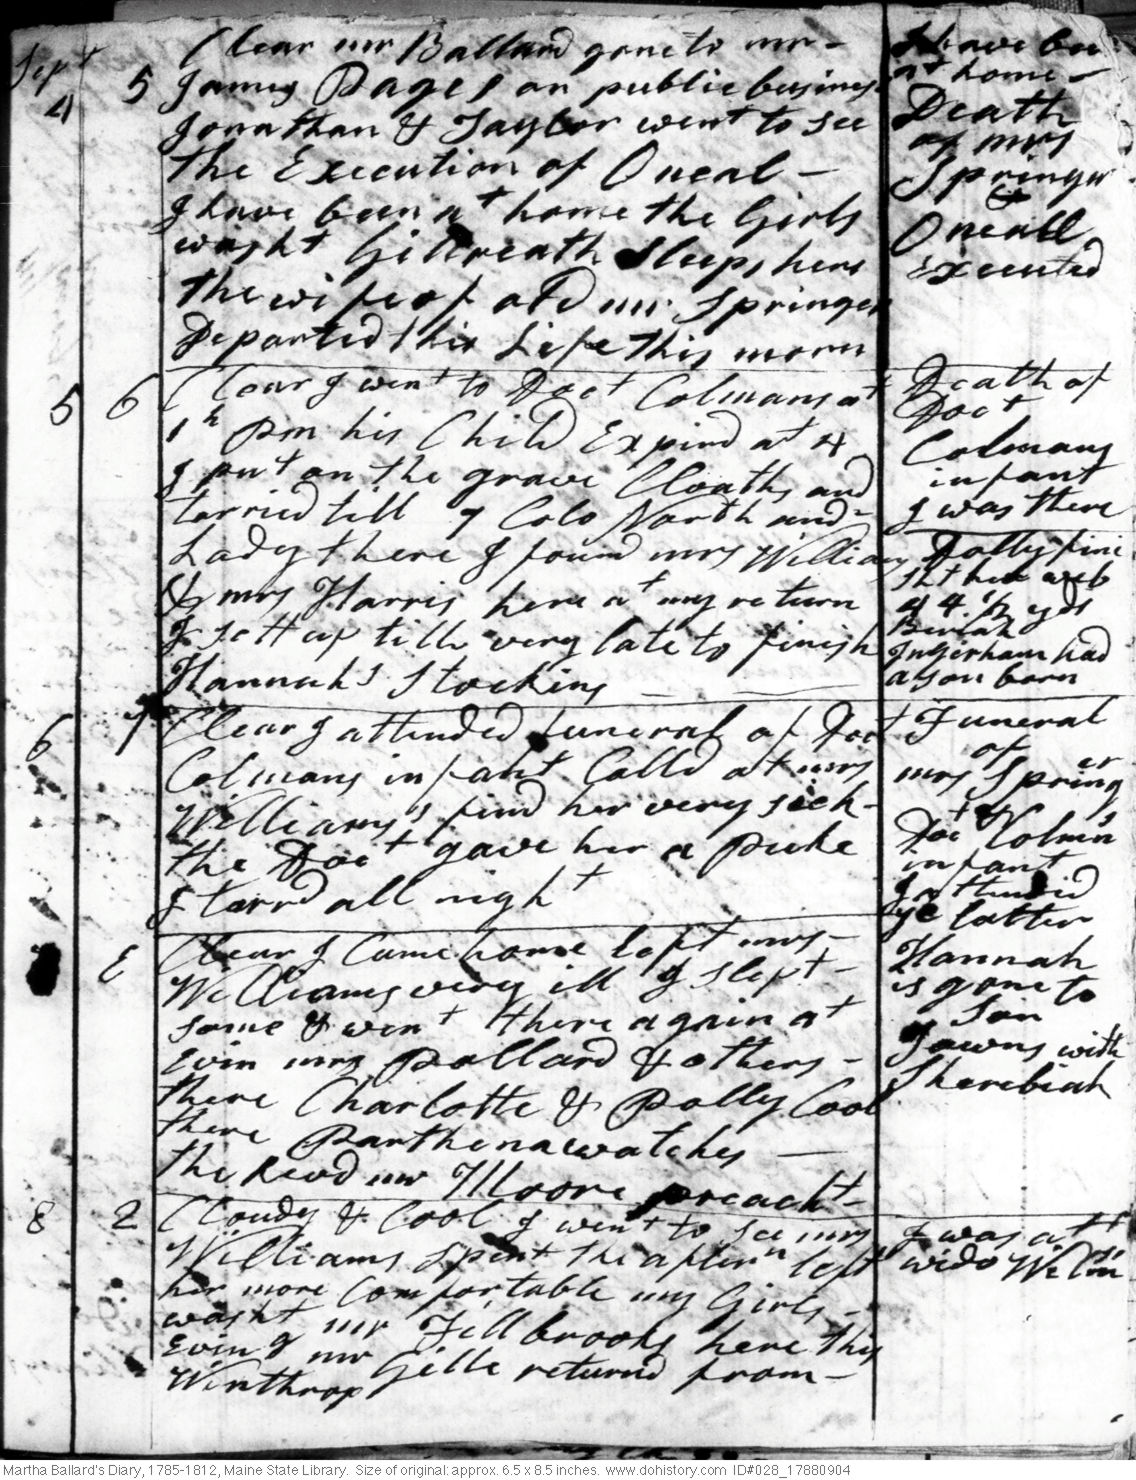 Sept
4 5 Clear mr Ballard gone to mr -
James Pages on public business
Jonathan & Taylor went to see
the Execution of Oneal -
I have been at home the Girls
washt Gillreath Sleeps here
the wife of old mr Springer
Departed this Life this morn
I have been
at home -
Death
of mrs
Springer
&
Oneall
Executed
5 6 Clear I went to Doct Colmans at
1 h Pm his Child Expird at 4
I put on the grave Cloaths and
tarried till 7 Colo North and -
Lady there I found mrs Williams
& mrs Harris here at my return
I sett up till very late to finish
Hannahs Stockins
Death of
Doct
Colmans
infant
I was there
Dolly fini
sht her web
44 1/2 yds
Beriah
Ingerham had
a son born
6 7 Clear I attended funeral of Doct
Colmans infant Calld at mrs
Williams's find her very sick -
the Doct gave her a puke
I tarrd all night
Funeral
of
mrs Springer
&
Doct Colmn's
infant
I attended
ye latter
E Clear I Came home left mrs -
Williams very ill I slept -
some & went there again at
Evin mrs Pollard & others -
there Charlotte & Polly Cool
there Parthena watches
the Revd mr Moore preacht -
Hannah
is gone to
Son
Towns with
Sherebiah
8 2 Cloudy & Cool I went to see mrs
Williams spent the aftern left
her more Comfortable my Girls -
washt mr Fillbrooks here this
Evin g mr Gille returnd from -
Winthrop
I was att
wido Wilm
Martha Ballard's Diary, 1785-1812, Maine State Library. Size of original: approx. 6.5 x 8.5 inches. www.dohistory.com ID#028_17880904